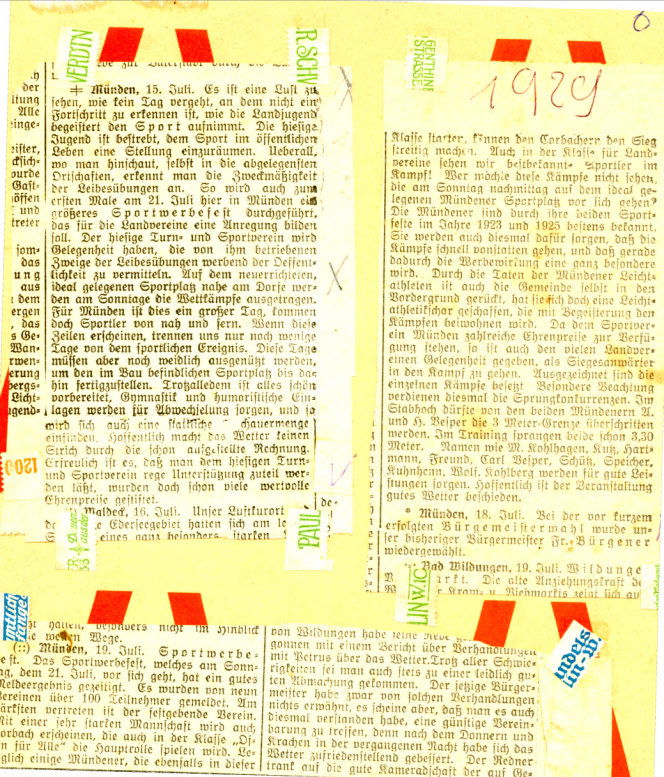 VERDIN
R.SCHV
GENTHIN
STRASSE
1929
der
ltung
Alle
inge-
eister,
Gast-
und
treter
jom-
das
ung
aus
dem
ergen
das
Ge-
Wan-
rwen-
erung
bergs-
Licht-
ugend-
Münden, 15. Juli. Es ist eine Lust zu
sehen, wie kein Tag vergeht, an dem nicht ein
Fortschritt zu erkennen ist, wie die Landjugend
begeistert den Sport aufnimmt. Die hiesige
Jugend ist bestrebt, dem Sport im öffentlichen
Leben eine Stellung einzuräumen. Ueberall,
wo man hinschaut, selbst in die abgelegensten
Ortschaften, erkennt man die Zweckmäßigkeit
der Leibesübungen an. So wird auch zum
ersten Male am 21. Juli hier in Münden ein
größeres Sportwerbefest durchgeführt,
das für die Landvereine eine Anregung bilden
soll. Der hiesige Turn- und Sportverein wird
Gelegenheit haben, die von ihm betriebenen
Zweige der Leibesübungen werbend der Oeffent-
lichkeit zu vermitteln. Auf dem neuerrichteten,
ideal gelegenen Sportplatz nahe am Dorfe wer-
den am Sonntage die Wettkämpfe ausgetragen.
Für Münden ist dies ein großer Tag, kommen
doch Sportler von nah und fern. Wenn diese
Zeilen erscheinen, trennen uns nur noch wenige
Tage von dem sportlichen Ereignis. Diese Tage
müssen aber noch weidlich ausgenützt werden,
um den im Bau befindlichen Sportplatz bis da-
hin fertigzustellen. Trotzalledem ist alles schön
vorbereitet, Gymnastik und humoristische Ein-
lagen werden für Abwechselung sorgen, und so
wird sich auch eine stattliche chauermenge
einfinden. Hoffentlich macht das Wetter keinen
Strich durch die schon aufgestellte Rechnung.
Erfreulich ist es, daß man dem hiesigen Turn-
und Sportverein rege Unterstützung zuteil wer-
den läßt, wurden doch schon viele wertvolle
Ehrenpreise gestiftet.
Waldeck, 16. Juli. Unser Luftkurort
Ederseegebiet hatten sich am
eines ganz besonders starken
1200
PAUL
Klasse starter, können den Corbachern den Sieg
streitig machen. Auch in der Klasse für Land-
vereine sehen wir bestbekannte Sportler im
Kampf! Wer möchte diese Kämpfe nicht sehen,
die am Sonntag nachmittag auf dem ideal ge-
legenen Mündener Sportplatz vor sich gehen?
Die Mündener sind durch ihre beiden Sport-
feste im Jahre 1923 und 1925 bestens bekannt.
Sie werden auch diesmal dafür sorgen, daß die
Kämpfe schnell vonstatten gehen, und daß gerade
dadurch die Werbewirkung eine ganz besondere
wird. Durch die Taten der Mündener Leicht-
athleten ist auch die Gemeinde selbst in den
Vordergrund gerückt, hat sie sich doch eine Leicht-
athletikschar geschaffen, die mit Begeisterung den
Kämpfen beiwohnen wird. Da dem Sportver-
ein Münden zahlreiche Ehrenpreise zur Verfü-
gung stehen, so ist auch den vielen Landver-
einen Gelegenheit gegeben, als Siegesanwärter
in den Kampf zu gehen. Ausgezeichnet sind die
einzelnen Kämpfe besetzt Besondere Beachtung
verdienen diesmal die Sprungkonkurrenzen. Im
Stabhoch dürfte von den beiden Mündenern A.
und H. Beiper die 3 Meter-Grenze überschritten
werden. Im Training sprangen beide schon 3,30
Meter. Namen wie M. Kohlhagen, Kutz, Hart-
mann, Freund, Carl Beiper, Schütz, Speicher,
Kuhnhenn, Wolf, Kohlberg werden für gute Lei-
stungen sorgen. Hoffentlich ist der Veranstaltung
gutes Wetter beschieden.
* Münden, 18. Juli. Bei der vor kurzem
erfolgten Bürgermeisterwahl wurde un-
ser bisheriger Bürgermeister Fr. Bürgener
wiedergewählt.
Bad Wildungen, 19. Juli. Wildunge
Markt. Die alte Anziehungskraft de
Kram- u. Viehmarkts zeigt sich auf
LINW.IC
hatten, besonders nicht im Hinblick
weiten Wege.
(::) Münden, 19. Juli. Sportwerbe-
fest. Das Sportwerbefest, welches am Sonn-
ag, dem 21. Juli, vor sich geht, hat ein gutes
Meldeergebnis gezeitigt. Es wurden von neun
Vereinen über 100 Teilnehmer gemeldet. Am
stärksten vertreten ist der festgebende Verein.
Mit einer sehr starken Mannschaft wird auch
orbach erscheinen, die auch in der Klasse „Of-
n für Alle“ die Hauptrolle spielen wird. Le-
glich einige Mündener, die ebenfalls in dieser
von Wildungen habe seine Rede
gonnen mit einem Bericht über Verhandlungen
mit Petrus über das Wetter. Trotz aller Schwie-
rigkeiten sei man auch stets zu einer leidlich gu-
ten Abmachung gekommen. Der jetzige Bürger-
meister habe zwar von solchen Verhandlungen
nichts erwähnt, es scheine aber, daß man es auch
diesmal verstanden habe, eine günstige Verein-
barung zu treffen, denn nach dem Donnern und
Krachen in der vergangenen Nacht habe sich das
Wetter zufriedenstellend gebessert. Der Redner
trank auf die gute Kameradschaft der auf Ge-